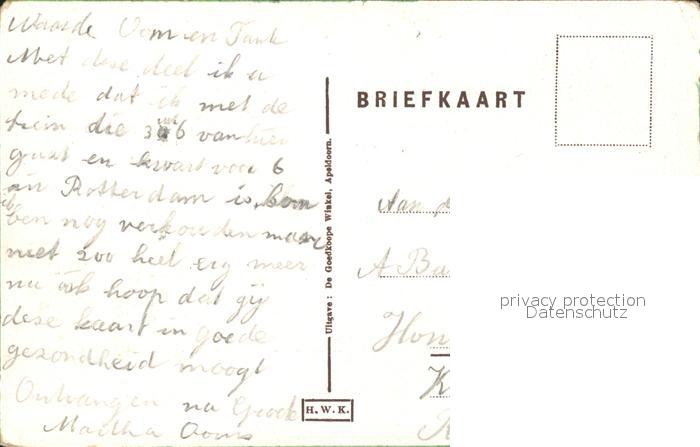 Waarde Oom en Tante
Met deze deel ik u
mede dat ik met de
trein die 3 uur 6 van hier
gaat en kwart voor 6
in Rotterdam is, kom
ik
ben nog verkouden maar
niet zoo heel erg meer
nu ik hoop dat gij
deze kaart in goede
gezondheid moogt
Ontvangen na Groete
Martha Ooms
Uitgave: De Goedkoope Winkel, Apeldoorn.
H.W.K.
BRIEFKAART
Aan d
A Ba
Hon
K
privacy protection
Datenschutz